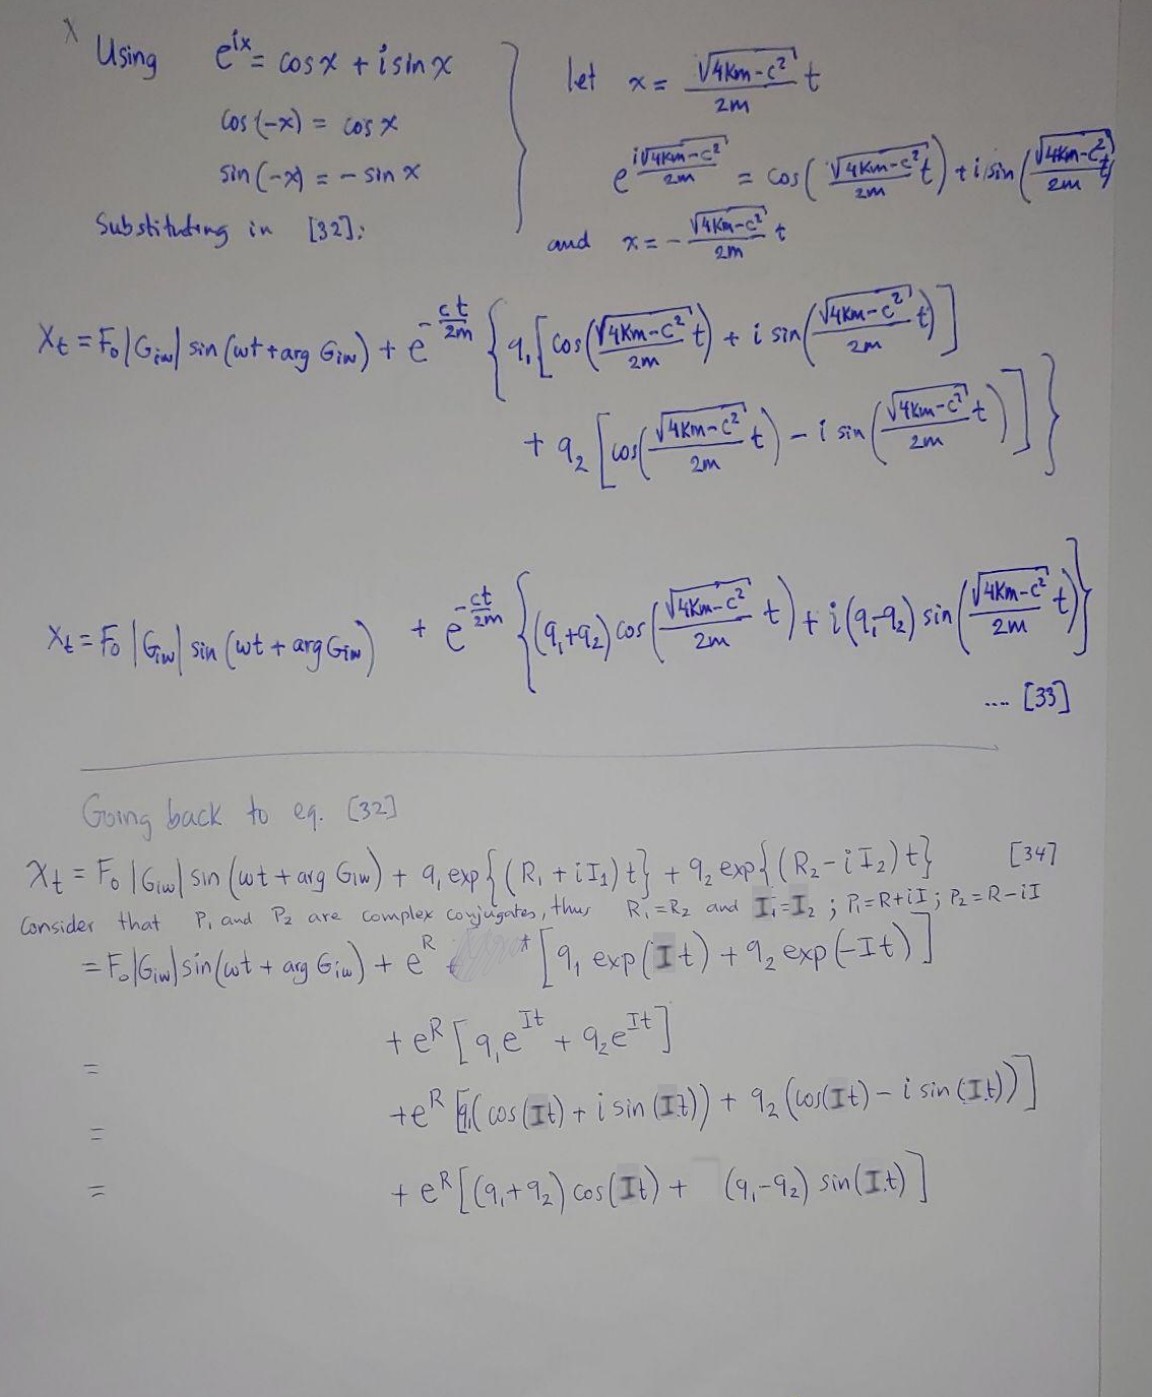 X
Using e^{ix} = cos x + i sin x
cos(-x) = cos x
sin(-x) = - sin x
Substituting in [32]:
let x = \frac{\sqrt{4Km-c^2}}{2m} t
e^{\frac{i\sqrt{4Km-c^2}}{2m}} = cos(\frac{\sqrt{4Km-c^2}}{2m} t) + i sin(\frac{\sqrt{4Km-c^2}}{2m} t)
and x = - \frac{\sqrt{4Km-c^2}}{2m} t
X_t = F_0 |G_{iw}| sin(wt + arg G_{iw}) + e^{-\frac{ct}{2m}} { q_1 [cos(\frac{\sqrt{4Km-c^2}}{2m} t) + i sin(\frac{\sqrt{4Km-c^2}}{2m} t)]
+ q_2 [cos(\frac{\sqrt{4Km-c^2}}{2m} t) - i sin(\frac{\sqrt{4Km-c^2}}{2m} t)] }
X_t = F_0 |G_{iw}| sin(wt + arg G_{iw}) + e^{-\frac{ct}{2m}} { (q_1+q_2) cos(\frac{\sqrt{4Km-c^2}}{2m} t) + i (q_1-q_2) sin(\frac{\sqrt{4Km-c^2}}{2m} t) }
.... [33]
Going back to eq. [32]
X_t = F_0 |G_{iw}| sin(wt + arg G_{iw}) + q_1 exp{(R_1 + i I_1) t} + q_2 exp{(R_2 - i I_2) t} [34]
Consider that P_1 and P_2 are complex conjugates, thus R_1 = R_2 and I_1 = I_2 ; P_1 = R+iI ; P_2 = R-iI
= F_0 |G_{iw}| sin(wt + arg G_{iw}) + e^R [q_1 exp(It) + q_2 exp(-It)]
= + e^R [q_1 e^{It} + q_2 e^{It}]
= + e^R [q_1(cos(It) + i sin(It)) + q_2 (cos(It) - i sin(It))]
= + e^R [(q_1+q_2) cos(It) + (q_1-q_2) sin(It)]